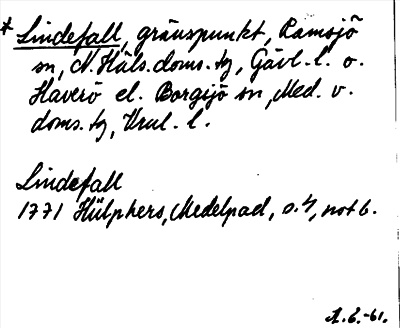 * Lindefall, gränspunkt, Ramsjö
sn, N. Häls. doms. tg, Gävl. l. o.
Haverö el. Borgsjö sn, Med. v.
doms. tg, Vnul. l.
Lindefall
1771 Hülphers, Medelpad, s. 4, not 6.
-61.